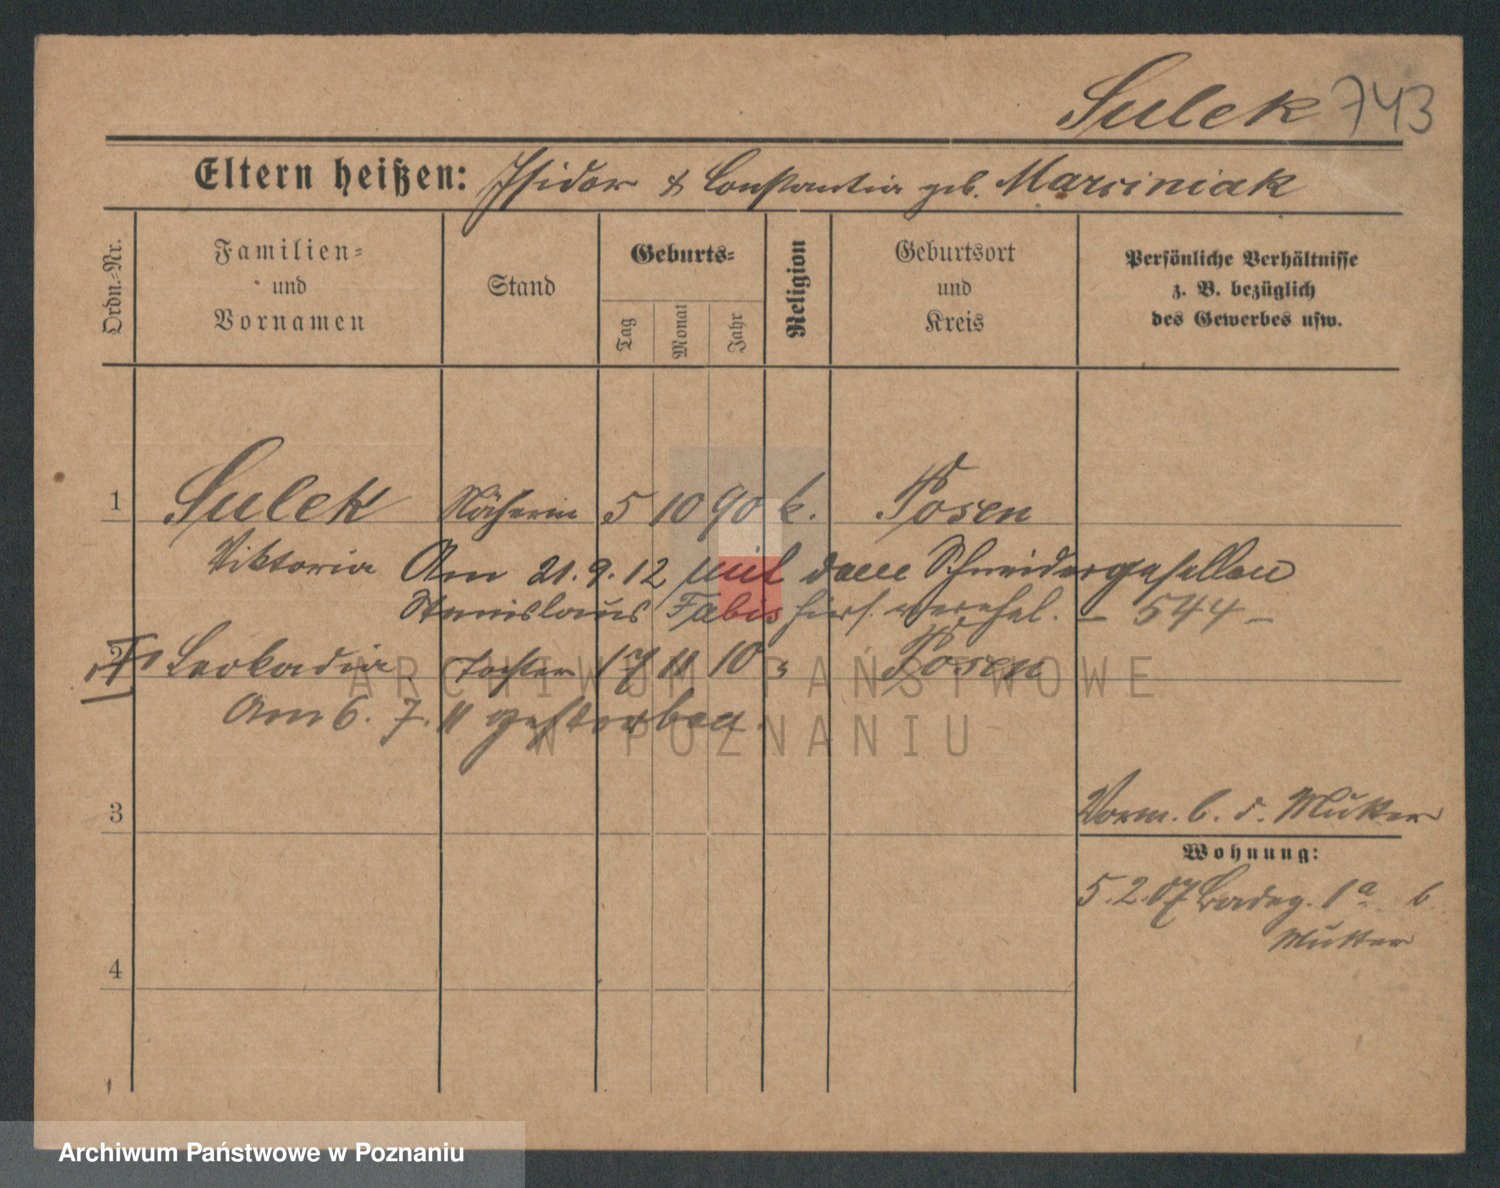 Sulek 743
Eltern heißen: Isidor & Constantia geb. Marciniak
Ordn.-Nr.
Familien- und Vornamen
Stand
Geburts-
Tag
Monat
Jahr
Religion
Geburtsort und Kreis
Persönliche Verhältnisse z. B. bezüglich des Gewerbes usw.
1 Sulek Näherin 5 10 90 k. Posen
Viktoria Am 21.9.12 mit dem Schneidergesellen
Stanislaus Fabis hier verehel. – 544 –
2 Leokadia Tochter 17 11 10 Posen
Am 6. 7. 11 gestorben.
3
Vorm. b. d. Mutter
Wohnung:
5.2.07 1a b
Mutter
4
ARCHIWUM PAŃSTWOWE
W POZNANIU
Archiwum Państwowe w Poznaniu